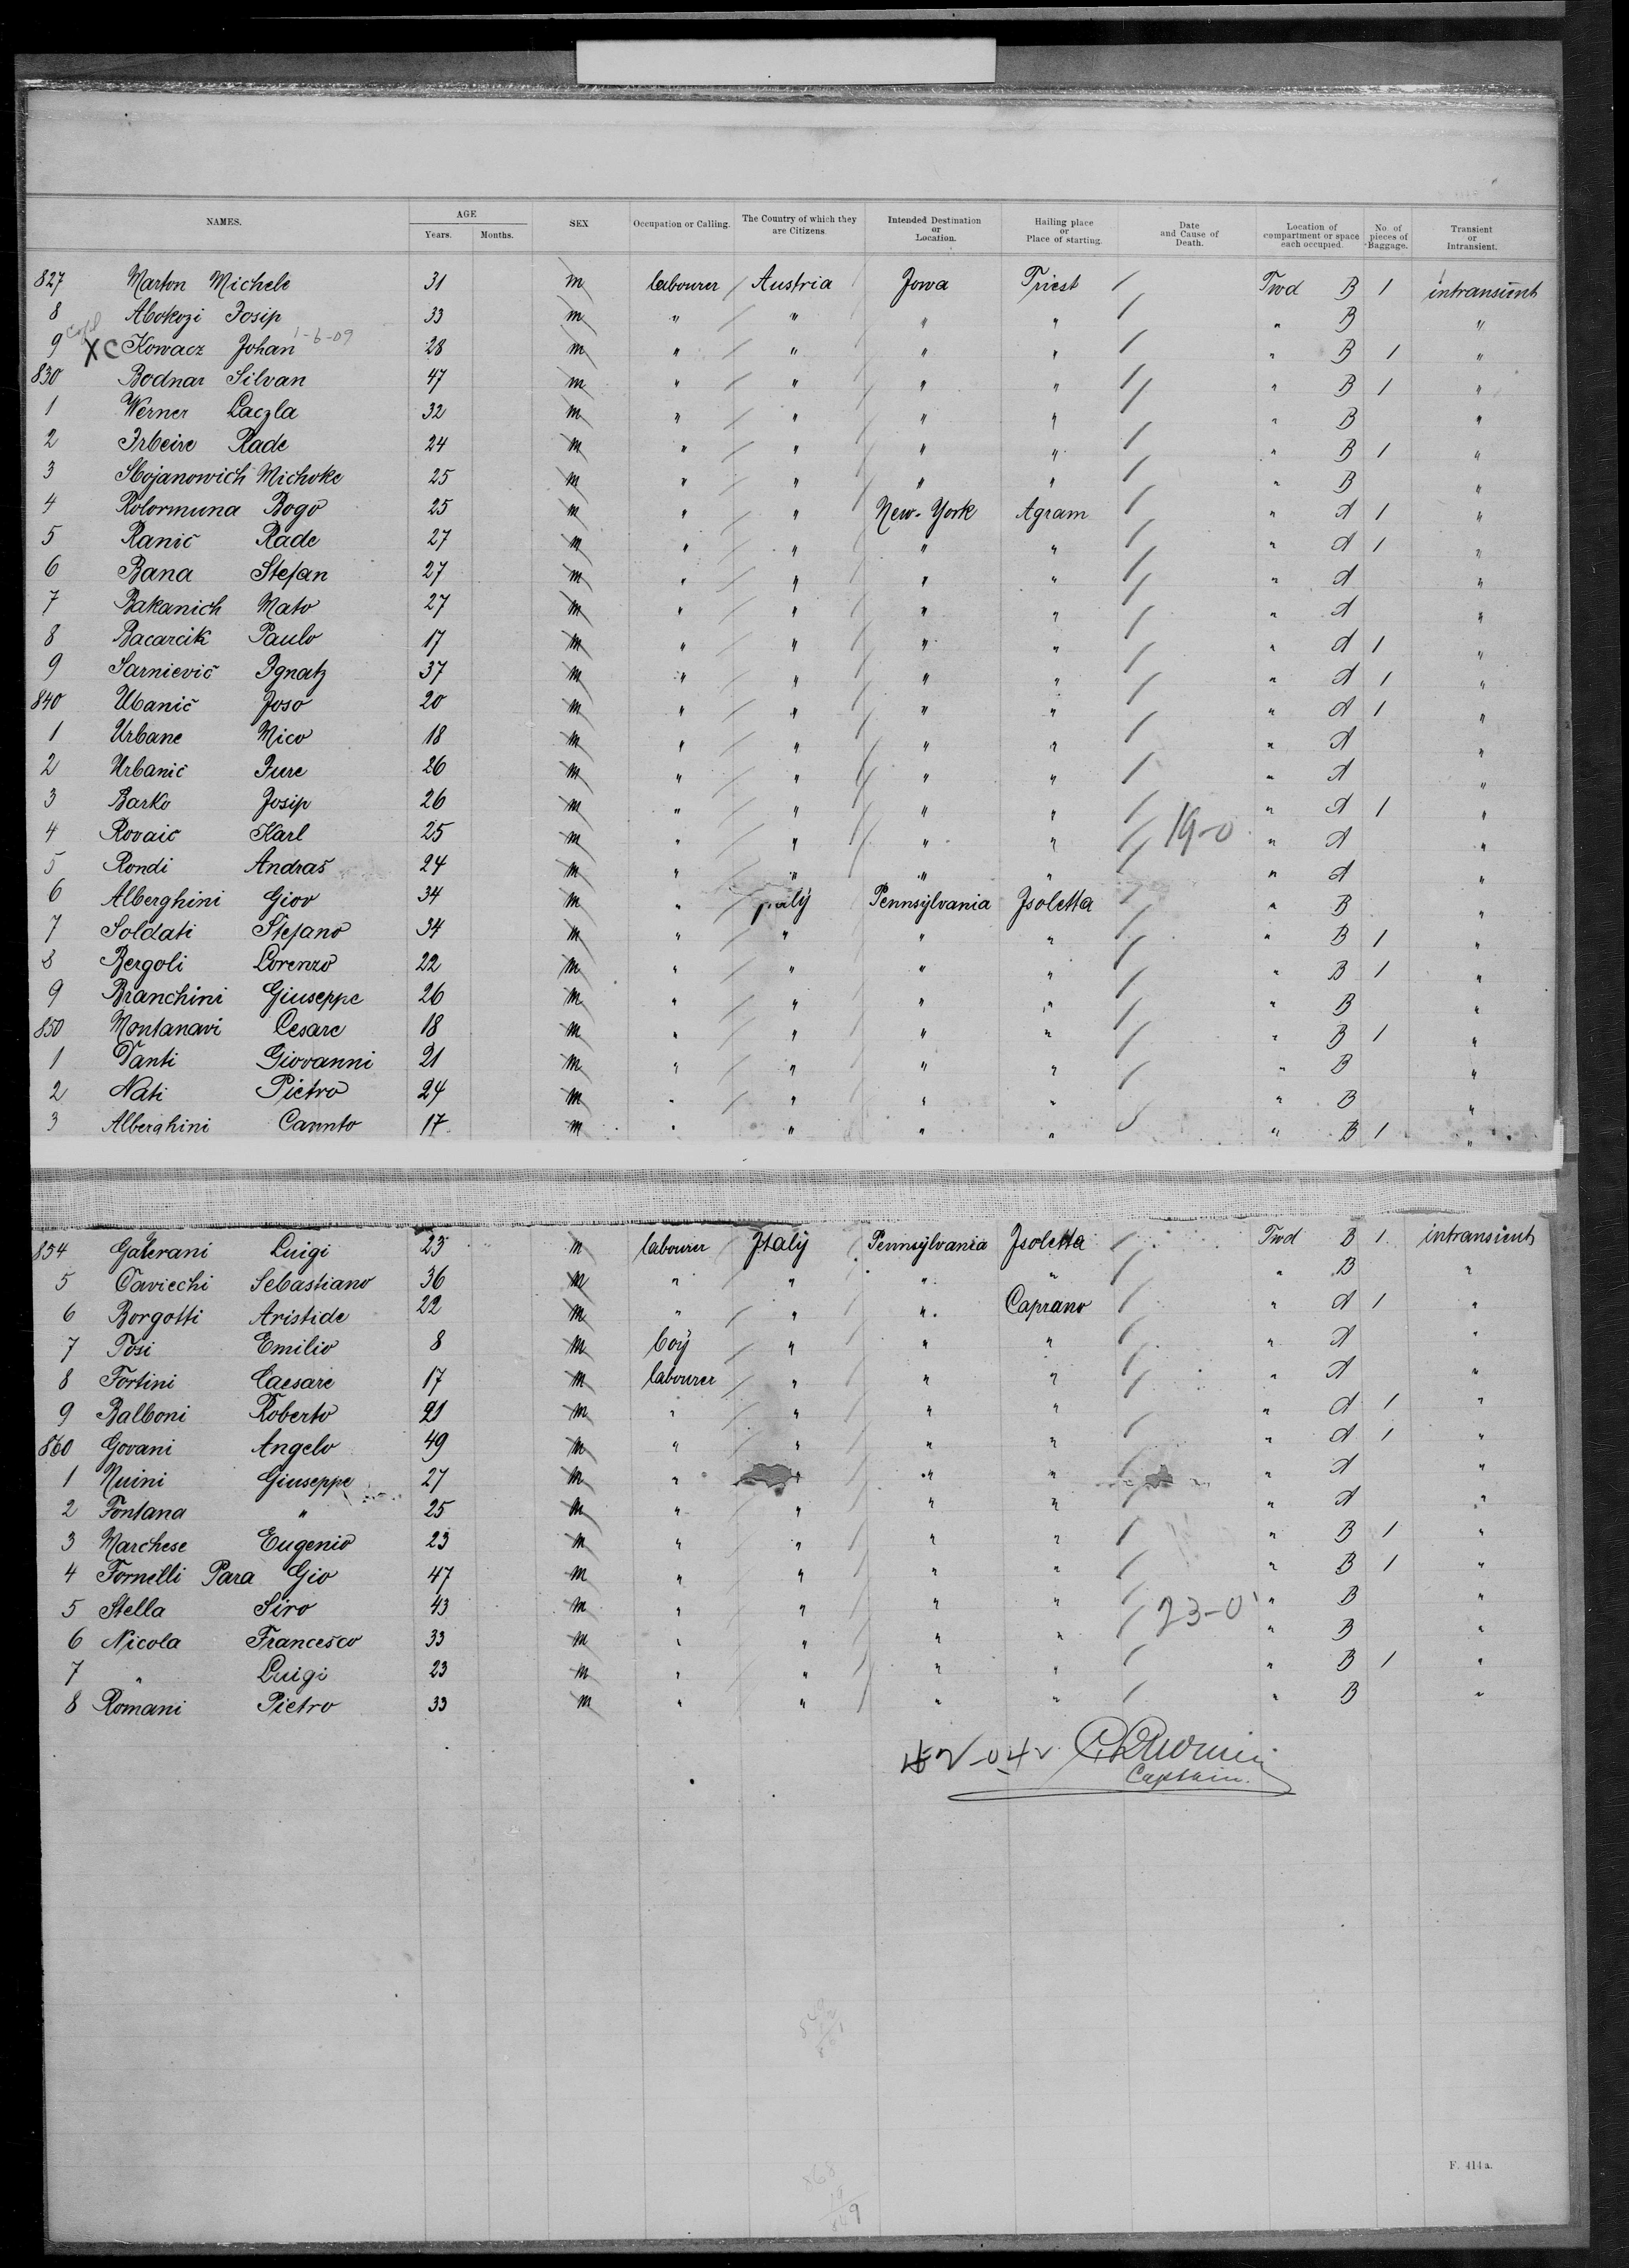 NAMES. AGE Years. Months. SEX Occupation or Calling. The Country of which they are Citizens. Intended Destination or Location. Hailing place or Place of starting. Date and Cause of Death. Location of compartment or space each occupied. No. of pieces of Baggage. Transient or Intransient.
827 Marton Michele 31 m labourer Austria Jowa Triest Twd B 1 intransient
8 Abokozi Josip 33 m " " " " " B "
9 XC Kowacz Johan 1-6-09 28 m " " " " " B 1 "
830 Bodnar Silvan 47 m " " " " " B 1 "
1 Werner Laczla 32 m " " " " " B "
2 Irbeire Rade 24 m " " " " " B 1 "
3 Stojanowich Michoke 25 m " " " " " B "
4 Kolormuna Bogo 25 m " " New-York Agram " A 1 "
5 Ranić Rade 27 m " " " " " A 1 "
6 Bana Stefan 27 m " " " " " A "
7 Bakanich Mato 27 m " " " " " A "
8 Bacarcik Paulo 17 m " " " " " A 1 "
9 Sarniević Ignatz 37 m " " " " " A 1 "
840 Ubanić Joso 20 m " " " " " A 1 "
1 Urbane Mico 18 m " " " " " A "
2 Urbanić Jure 26 m " " " " " A "
3 Barko Josip 26 m " " " " " A 1 "
4 Rovaic Karl 25 m " " " " 19-0 " A "
5 Rondi Andraš 24 m " " " " " A "
6 Alberghini Giov 34 m " Italy Pennsylvania Jsoletta " B "
7 Soldati Stefano 34 m " " " " " B 1 "
8 Bergoli Lorenzo 22 m " " " " " B 1 "
9 Branchini Giuseppe 26 m " " " " " B "
850 Montanavi Cesare 18 m " " " " " B 1 "
1 Tanti Giovanni 21 m " " " " " B "
2 Nati Pietro 24 m " " " " " B "
3 Alberghini Cannto 17 m " " " " " B 1 "
854 Gaterani Luigi 23 m labourer Jtaly Pennsylvania Jsoletta Twd B 1 intransient
5 Cavicchi Sebastiano 36 m " " " " " B "
6 Borgotti Aristide 22 m " " " Caprano " A 1 "
7 Tosi Emilio 8 m boy " " " " A "
8 Fortini Caesare 17 m labourer " " " " A "
9 Balboni Roberto 21 m " " " " " A 1 "
860 Govani Angelo 49 m " " " " " A 1 "
1 Nuini Giuseppe 27 m " " " " " A "
2 Fontana " 25 m " " " " " A "
3 Marchese Eugenio 23 m " " " " " B 1 "
4 Fornelli Para Gio 47 m " " " " " B 1 "
5 Stella Siro 43 m " " " " 23-0 " B "
6 Nicola Francesco 33 m " " " " " B "
7 " Luigi 23 m " " " " " B 1 "
8 Romani Pietro 33 m " " " " " B "
Captain.
F. 414a.